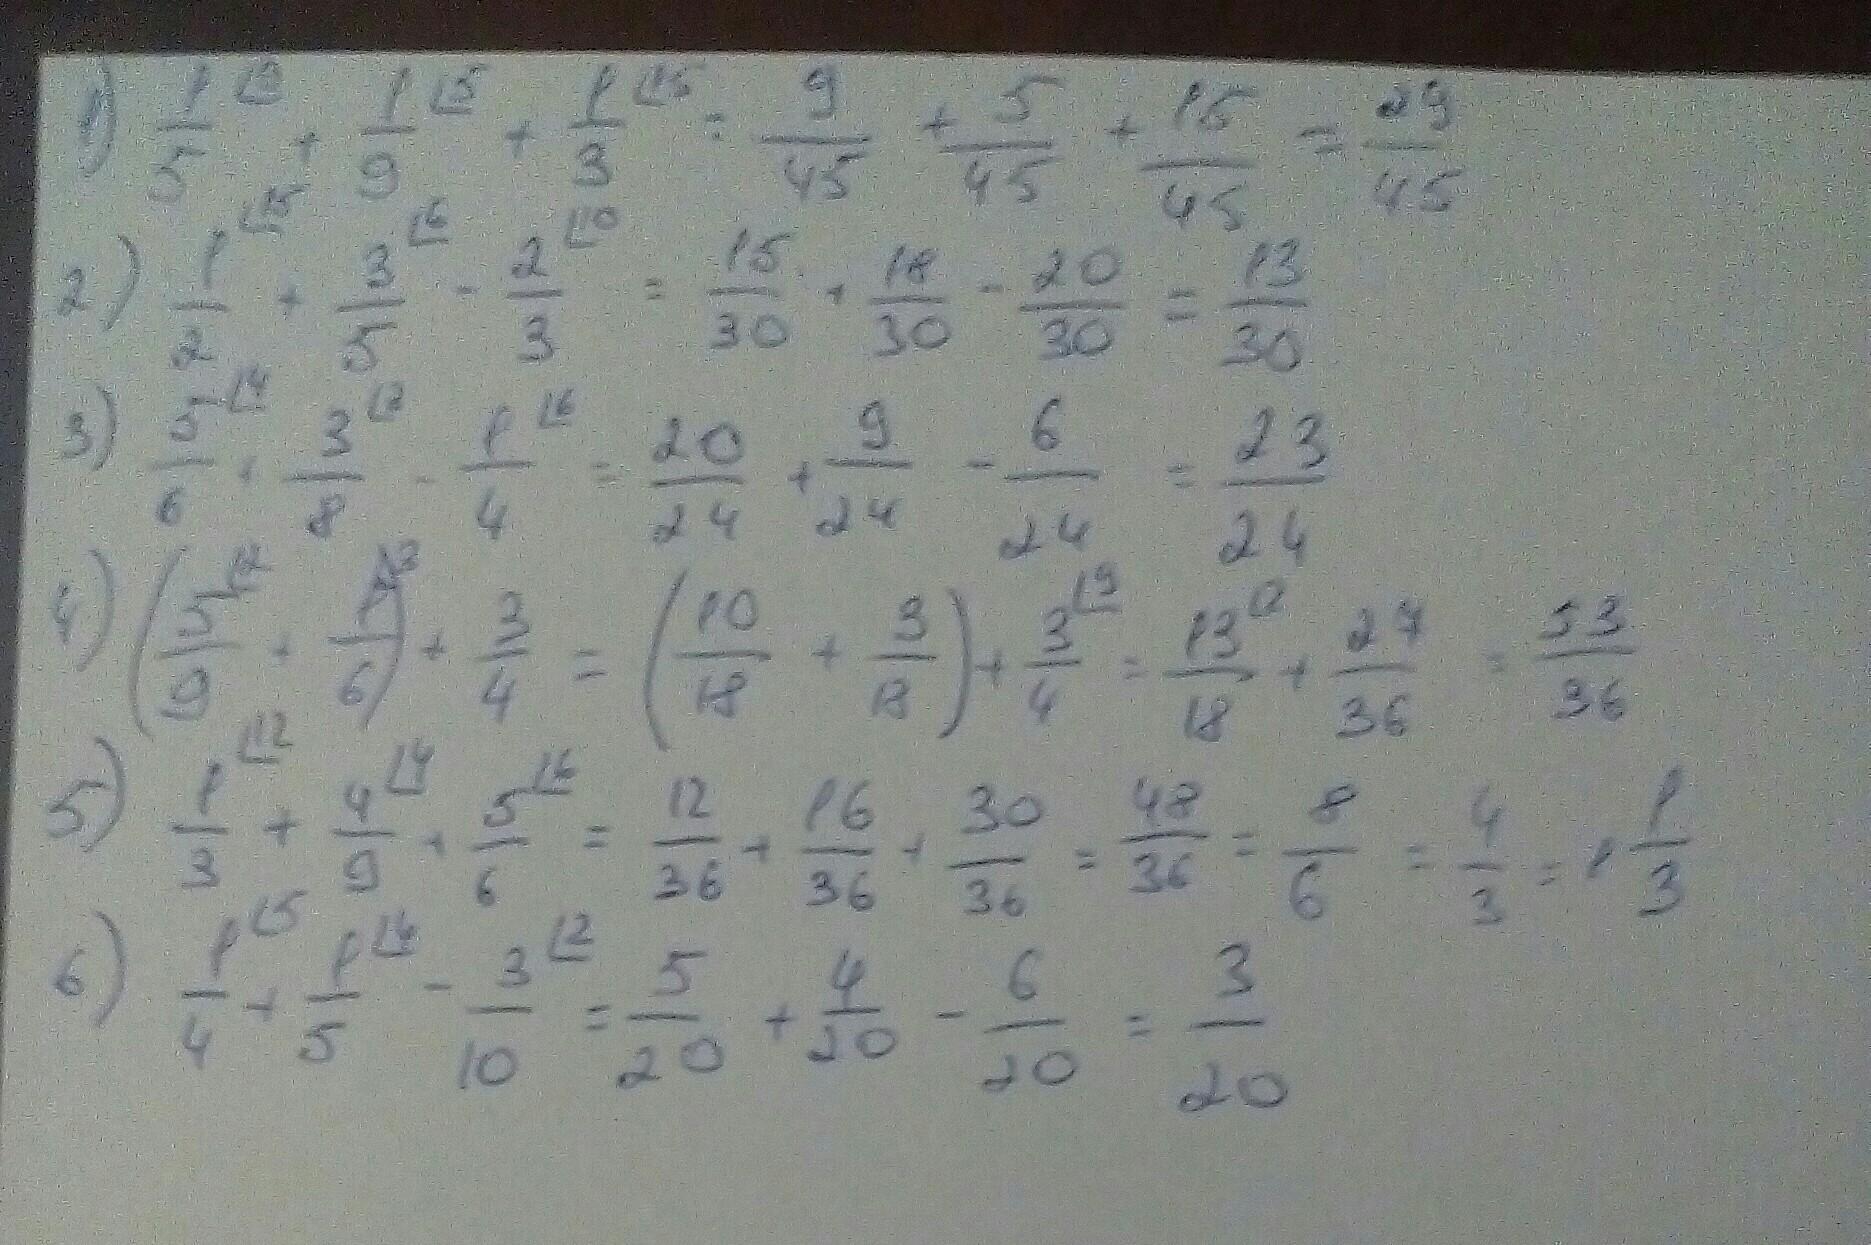 1) 1/5 ⌊9 + 1/9 ⌊5 + 1/3 ⌊15 = 9/45 + 5/45 + 15/45 = 29/45
2) 1/2 ⌊15 + 3/5 ⌊6 - 2/3 ⌊10 = 15/30 + 18/30 - 20/30 = 13/30
3) 5/6 ⌊4 + 3/8 ⌊3 - 1/4 ⌊6 = 20/24 + 9/24 - 6/24 = 23/24
4) (5/9 ⌊2 + 1/6 ⌊3) + 3/4 = (10/18 + 3/18) + 3/4 ⌊9 = 13/18 ⌊2 + 27/36 = 53/36
5) 1/3 ⌊12 + 4/9 ⌊4 + 5/6 ⌊6 = 12/36 + 16/36 + 30/36 = 48/36 = 8/6 = 4/3 = 1 1/3
6) 1/4 ⌊5 + 1/5 ⌊4 - 3/10 ⌊2 = 5/20 + 4/20 - 6/20 = 3/20